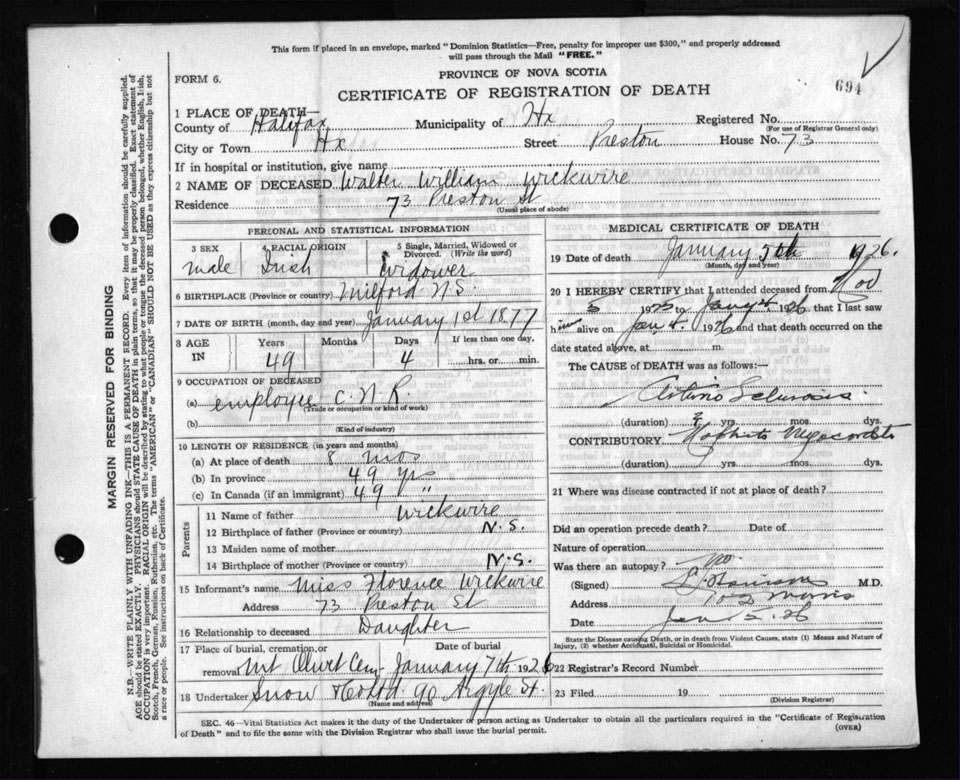 This form if placed in an envelope, marked "Dominion Statistics—Free, penalty for improper use $300," and properly addressed
will pass through the Mail "FREE."
FORM 6.
PROVINCE OF NOVA SCOTIA
694
CERTIFICATE OF REGISTRATION OF DEATH
1 PLACE OF DEATH—
County of Halifax Municipality of Hx Registered No.
(For use of Registrar General only)
City or Town Hx Street Preston House No. 73
If in hospital or institution, give name
2 NAME OF DECEASED Walter William Wickwire
Residence 73 Preston St
(Usual place of abode)
PERSONAL AND STATISTICAL INFORMATION
3 SEX 4 RACIAL ORIGIN 5 Single, Married, Widowed or Divorced. (Write the word)
male Irish Widower
6 BIRTHPLACE (Province or country) Milford N.S.
7 DATE OF BIRTH (month, day and year) January 1st 1877
8 AGE IN Years Months Days If less than one day,
49 4 hrs. or min.
9 OCCUPATION OF DECEASED
(a) employee C.N.R.
(Trade or occupation or kind of work)
(b)
(Kind of industry)
10 LENGTH OF RESIDENCE (in years and months)
(a) At place of death 8 mos
(b) In province 49 yrs
(c) In Canada (if an immigrant) 49 "
Parents
11 Name of father Wickwire
12 Birthplace of father (Province or country) N.S.
13 Maiden name of mother
14 Birthplace of mother (Province or country) N.S.
15 Informant's name Miss Florence Wickwire
Address 73 Preston St
16 Relationship to deceased Daughter
17 Place of burial, cremation, or Date of burial
removal Mt Olivet Cem January 7th 1926
18 Undertaker Snow & Co Ltd. 90 Argyle St.
(Name and address)
MEDICAL CERTIFICATE OF DEATH
19 Date of death January 5th 1926.
(Month, day and year)
20 I HEREBY CERTIFY that I attended deceased from
5 1925 to Jany 4 1926 that I last saw
him alive on Jan 4. 1926 and that death occurred on the
date stated above, at m.
The CAUSE OF DEATH was as follows:—
Sclerosis
(duration) ? yrs. mos. dys.
CONTRIBUTORY
(duration) ? yrs. mos. dys.
21 Where was disease contracted if not at place of death?
Did an operation precede death? Date of
Nature of operation
Was there an autopsy? no
(Signed) M.D.
Address Morris
Date Jan 5. 26
State the Disease causing Death, or in death from Violent Causes, state (1) Means and Nature of
Injury, (2) whether Accidental, Suicidal or Homicidal.
22 Registrar's Record Number
23 Filed 19
(Division Registrar)
SEC. 46—Vital Statistics Act makes it the duty of the Undertaker or person acting as Undertaker to obtain all the particulars required in the "Certificate of Registration
of Death" and to file the same with the Division Registrar who shall issue the burial permit.
(OVER)
MARGIN RESERVED FOR BINDING
N.B.—WRITE PLAINLY WITH UNFADING INK—THIS IS A PERMANENT RECORD. Every item of information should be carefully supplied.
AGE should be stated EXACTLY. PHYSICIANS should STATE CAUSE OF DEATH in plain terms, so that it may be properly classified. Exact statement of
OCCUPATION is very important. RACIAL ORIGIN will be described by stating to what people or tongue the deceased person belonged, whether English, Irish,
Scotch, French, German, Russian, Ruthenian, etc. The terms "AMERICAN" or "CANADIAN" SHOULD NOT BE USED as they express citizenship but not
a race or people. See instructions on back of Certificate.